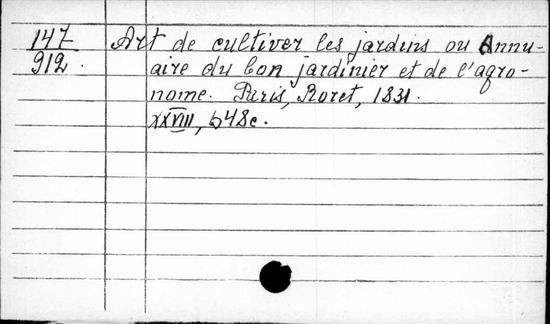 147 Art de cultiver les jardins ou Annu-
912. aire du bon jardinier et de l'agro-
nome. Paris, Roret, 1831.
XXVIII, 648c.